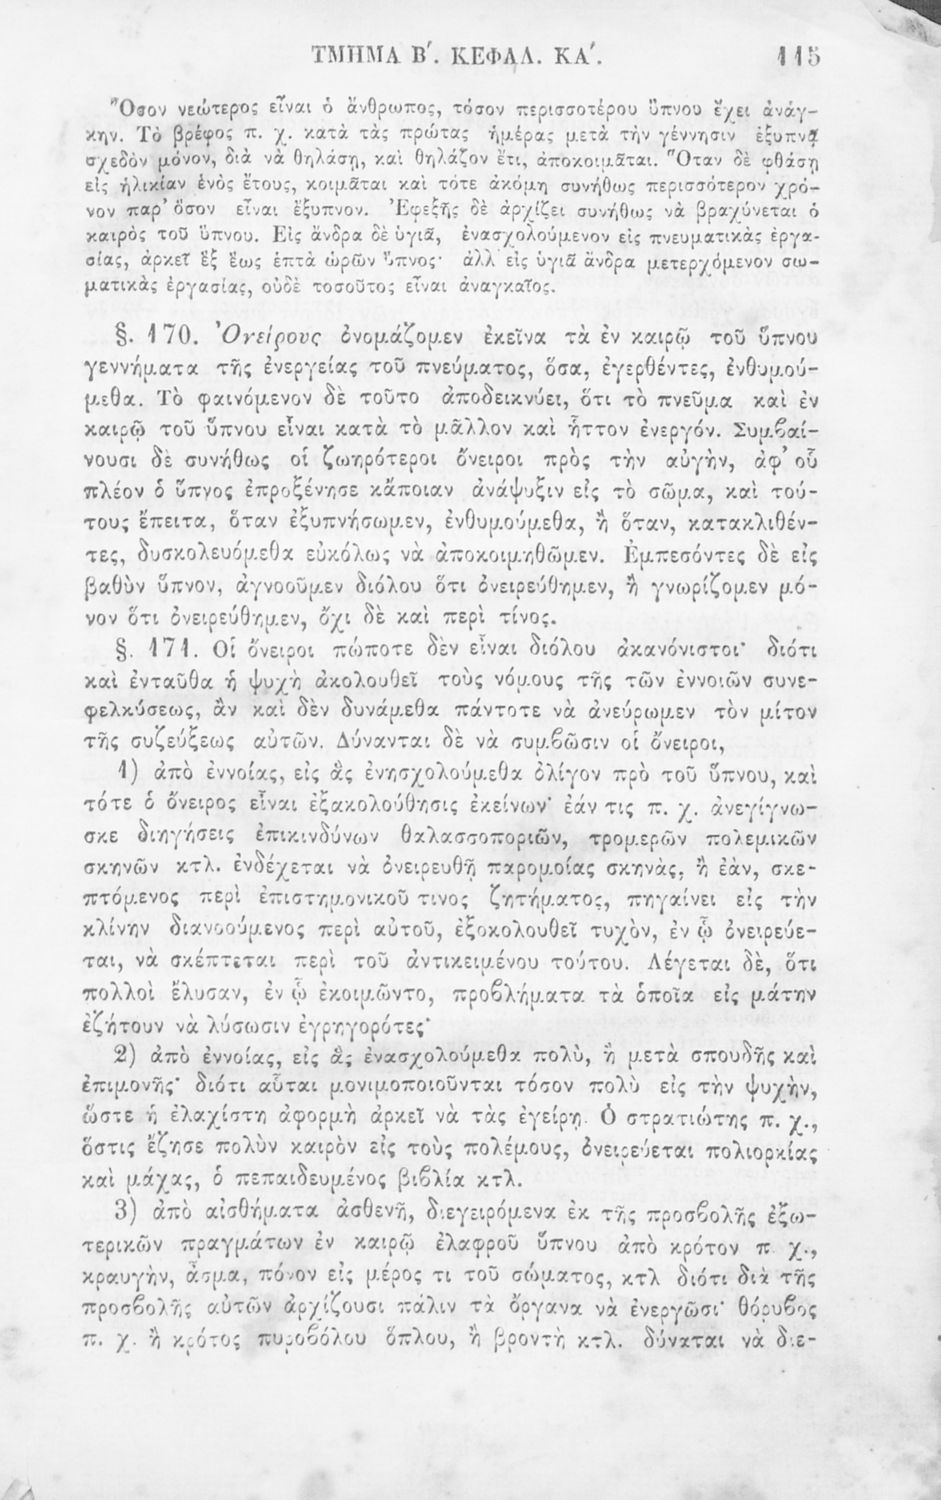 ΤΜΗΜΑ Β΄. ΚΕΦΑΛ. ΚΑ΄. 115
Ὅσον νεώτερος εἶναι ὁ ἄνθρωπος, τόσον περισσοτέρου ὕπνου ἔχει ἀνάγ-
κην. Τὸ βρέφος π. χ. κατὰ τὰς πρώτας ἡμέρας μετὰ τὴν γέννησιν ἐξυπνᾷ
σχεδὸν μόνον, διὰ νὰ θηλάσῃ, καὶ θηλάζον ἔτι, ἀποκοιμᾶται. Ὅταν δὲ φθάσῃ
εἰς ἡλικίαν ἑνὸς ἔτους, κοιμᾶται καὶ τότε ἀκόμη συνήθως περισσότερον χρό-
νον παρ' ὅσον εἶναι ἔξυπνον. Ἐφεξῆς δὲ ἀρχίζει συνήθως νὰ βραχύνεται ὁ
καιρὸς τοῦ ὕπνου. Εἰς ἄνδρα δὲ ὑγιᾶ, ἐνασχολούμενον εἰς πνευματικὰς ἐργα-
σίας, ἀρκεῖ ἓξ ἕως ἑπτὰ ὡρῶν ὕπνος· ἀλλ' εἰς ὑγιᾶ ἄνδρα μετερχόμενον σω-
ματικὰς ἐργασίας, οὐδὲ τοσοῦτος εἶναι ἀναγκαῖος.
§. 170. Ὀνείρους ὀνομάζομεν ἐκεῖνα τὰ ἐν καιρῷ τοῦ ὕπνου
γεννήματα τῆς ἐνεργείας τοῦ πνεύματος, ὅσα, ἐγερθέντες, ἐνθυμού-
μεθα. Τὸ φαινόμενον δὲ τοῦτο ἀποδεικνύει, ὅτι τὸ πνεῦμα καὶ ἐν
καιρῷ τοῦ ὕπνου εἶναι κατὰ τὸ μᾶλλον καὶ ἧττον ἐνεργόν. Συμβαί-
νουσι δὲ συνήθως οἱ ζωηρότεροι ὄνειροι πρὸς τὴν αὐγὴν, ἀφ' οὗ
πλέον ὁ ὕπνος ἐπροξένησε κἄποιαν ἀνάψυξιν εἰς τὸ σῶμα, καὶ τού-
τους ἔπειτα, ὅταν ἐξυπνήσωμεν, ἐνθυμούμεθα, ἢ ὅταν, κατακλιθέν-
τες, δυσκολευόμεθα εὐκόλως νὰ ἀποκοιμηθῶμεν. Ἐμπεσόντες δὲ εἰς
βαθὺν ὕπνον, ἀγνοοῦμεν διόλου ὅτι ὀνειρεύθημεν, ἢ γνωρίζομεν μό-
νον ὅτι ὀνειρεύθημεν, ὄχι δὲ καὶ περὶ τίνος.
§. 171. Οἱ ὄνειροι πώποτε δὲν εἶναι διόλου ἀκανόνιστοι· διότι
καὶ ἐνταῦθα ἡ ψυχὴ ἀκολουθεῖ τοὺς νόμους τῆς τῶν ἐννοιῶν συνε-
φελκύσεως, ἂν καὶ δὲν δυνάμεθα πάντοτε νὰ ἀνεύρωμεν τὸν μίτον
τῆς συζεύξεως αὐτῶν. Δύνανται δὲ νὰ συμβῶσιν οἱ ὄνειροι,
1) ἀπὸ ἐννοίας, εἰς ἃς ἐνησχολούμεθα ὀλίγον πρὸ τοῦ ὕπνου, καὶ
τότε ὁ ὄνειρος εἶναι ἐξακολούθησις ἐκείνων· ἐάν τις π. χ. ἀνεγίγνω-
σκε διηγήσεις ἐπικινδύνων θαλασσοποριῶν, τρομερῶν πολεμικῶν
σκηνῶν κτλ. ἐνδέχεται νὰ ὀνειρευθῇ παρομοίας σκηνὰς, ἢ ἐὰν, σκε-
πτόμενος περὶ ἐπιστημονικοῦ τινος ζητήματος, πηγαίνει εἰς τὴν
κλίνην διανοούμενος περὶ αὐτοῦ, ἐξοκολουθεῖ τυχὸν, ἐν ᾧ ὀνειρεύε-
ται, νὰ σκέπτεται περὶ τοῦ ἀντικειμένου τούτου. Λέγεται δὲ, ὅτι
πολλοὶ ἔλυσαν, ἐν ᾧ ἐκοιμῶντο, προβλήματα τὰ ὁποῖα εἰς μάτην
ἐζήτουν νὰ λύσωσιν ἐγρηγορότες·
2) ἀπὸ ἐννοίας, εἰς ἃς ἐνασχολούμεθα πολὺ, ἢ μετὰ σπουδῆς καὶ
ἐπιμονῆς· διότι αὗται μονιμοποιοῦνται τόσον πολὺ εἰς τὴν ψυχὴν,
ὥστε ἡ ἐλαχίστη ἀφορμὴ ἀρκεῖ νὰ τὰς ἐγείρῃ. Ὁ στρατιώτης π. χ.,
ὅστις ἔζησε πολὺν καιρὸν εἰς τοὺς πολέμους, ὀνειρεύεται πολιορκίας
καὶ μάχας, ὁ πεπαιδευμένος βιβλία κτλ.
3) ἀπὸ αἰσθήματα ἀσθενῆ, διεγειρόμενα ἐκ τῆς προσβολῆς ἐξω-
τερικῶν πραγμάτων ἐν καιρῷ ἐλαφροῦ ὕπνου ἀπὸ κρότον π. χ.,
κραυγὴν, ᾆσμα, πόνον εἰς μέρος τι τοῦ σώματος, κτλ διότι διὰ τῆς
προσβολῆς αὐτῶν ἀρχίζουσι πάλιν τὰ ὄργανα νὰ ἐνεργῶσι· θόρυβος
π. χ. ἢ κρότος πυροβόλου ὅπλου, ἢ βροντὴ κτλ. δύναται νὰ διε-